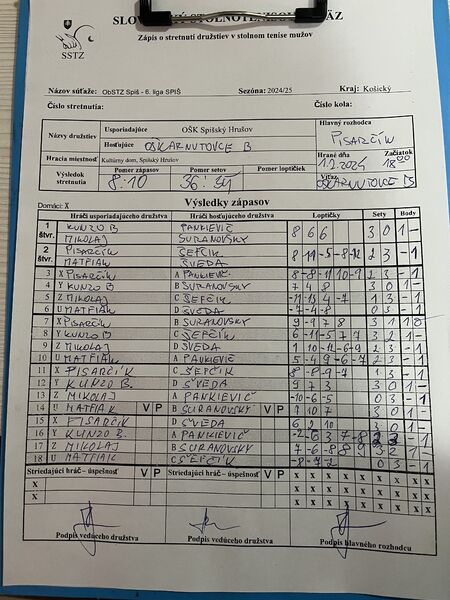 SSTZ
Zápis o stretnutí družstiev v stolnom tenise mužov
Názov súťaže: ObSTZ Spiš - 6. liga SPIŠ Sezóna: 2024/25 Kraj: Košický
Číslo stretnutia: Číslo kola:
Názvy družstiev Usporiadajúce OŠK Spišský Hrušov Hlavný rozhodca
Hosťujúce OŠKARNUTOVCE B PISARČÍK
Hracia miestnosť Kultúrny dom, Spišský Hrušov Hrané dňa Začiatok
Výsledok stretnutia Pomer zápasov Pomer setov Pomer loptičiek 18 00
8:10 Víťaz
Výsledky zápasov
Domáci: X
Hráči usporiadajúceho družstva Hráči hosťujúceho družstva Loptičky Sety Body
1 štvr. KUNZO B PANKIEVIČ 8 6 6 3 0 1 -
MIKOLAJ SURANOVSKY
2 štvr. PISARČÍK ŠEFČÍK 2 3 - 1
MATFIAK ŠVEDA
3 X PISARČÍK A PANKIEVIČ 2 3 - 1
4 Y KUNZO B B SURANOVSKY 7 4 8 3 0 1 -
5 Z MIKOLAJ C ŠEFČÍK -11 13 4 -7 1 3 - 1
6 U MATFIAK D ŠVEDA -7 -4 -8 0 3 - 1
7 X PISARČÍK B SURANOVSKY 9 -9 7 8 3 1
8 Y KUNZO B C ŠEFČÍK 6 -11 5 -7 7 3 2 1 -
9 Z MIKOLAJ D ŠVEDA 2 3 - 1
10 U MATFIAK A PANKIEVIČ 5 -4 9 -6 -7 2 3 - 1
11 X PISARČÍK C ŠEFČÍK 8 -8 -9 -7 1 3 - 1
12 Y KUNZO B. D ŠVEDA 9 7 3 3 0 1 -
13 Z MIKOLAJ A PANKIEVIČ -10 -6 -5 0 3 - 1
14 U MATFIAK V P B SURANOVSKY V P 7 10 7 3 0 1 -
15 X PISARČÍK D ŠVEDA 6 2 10 3 0 1 -
16 Y KUNZO B. A PANKIEVIČ -2 -6 3 7 -8 2 3 - 1
17 Z MIKOLAJ B SURANOVSKY 7 -6 -8 8 9 3 2 1 -
18 U MATFIAK C ŠEFČÍK -8 -7 -2 0 3 - 1
Striedajúci hráč – úspešnosť V P Striedajúci hráč – úspešnosť V P X X X X X X X X X
X
X
X
Podpis vedúceho družstva Podpis vedúceho družstva Podpis hlavného rozhodcu